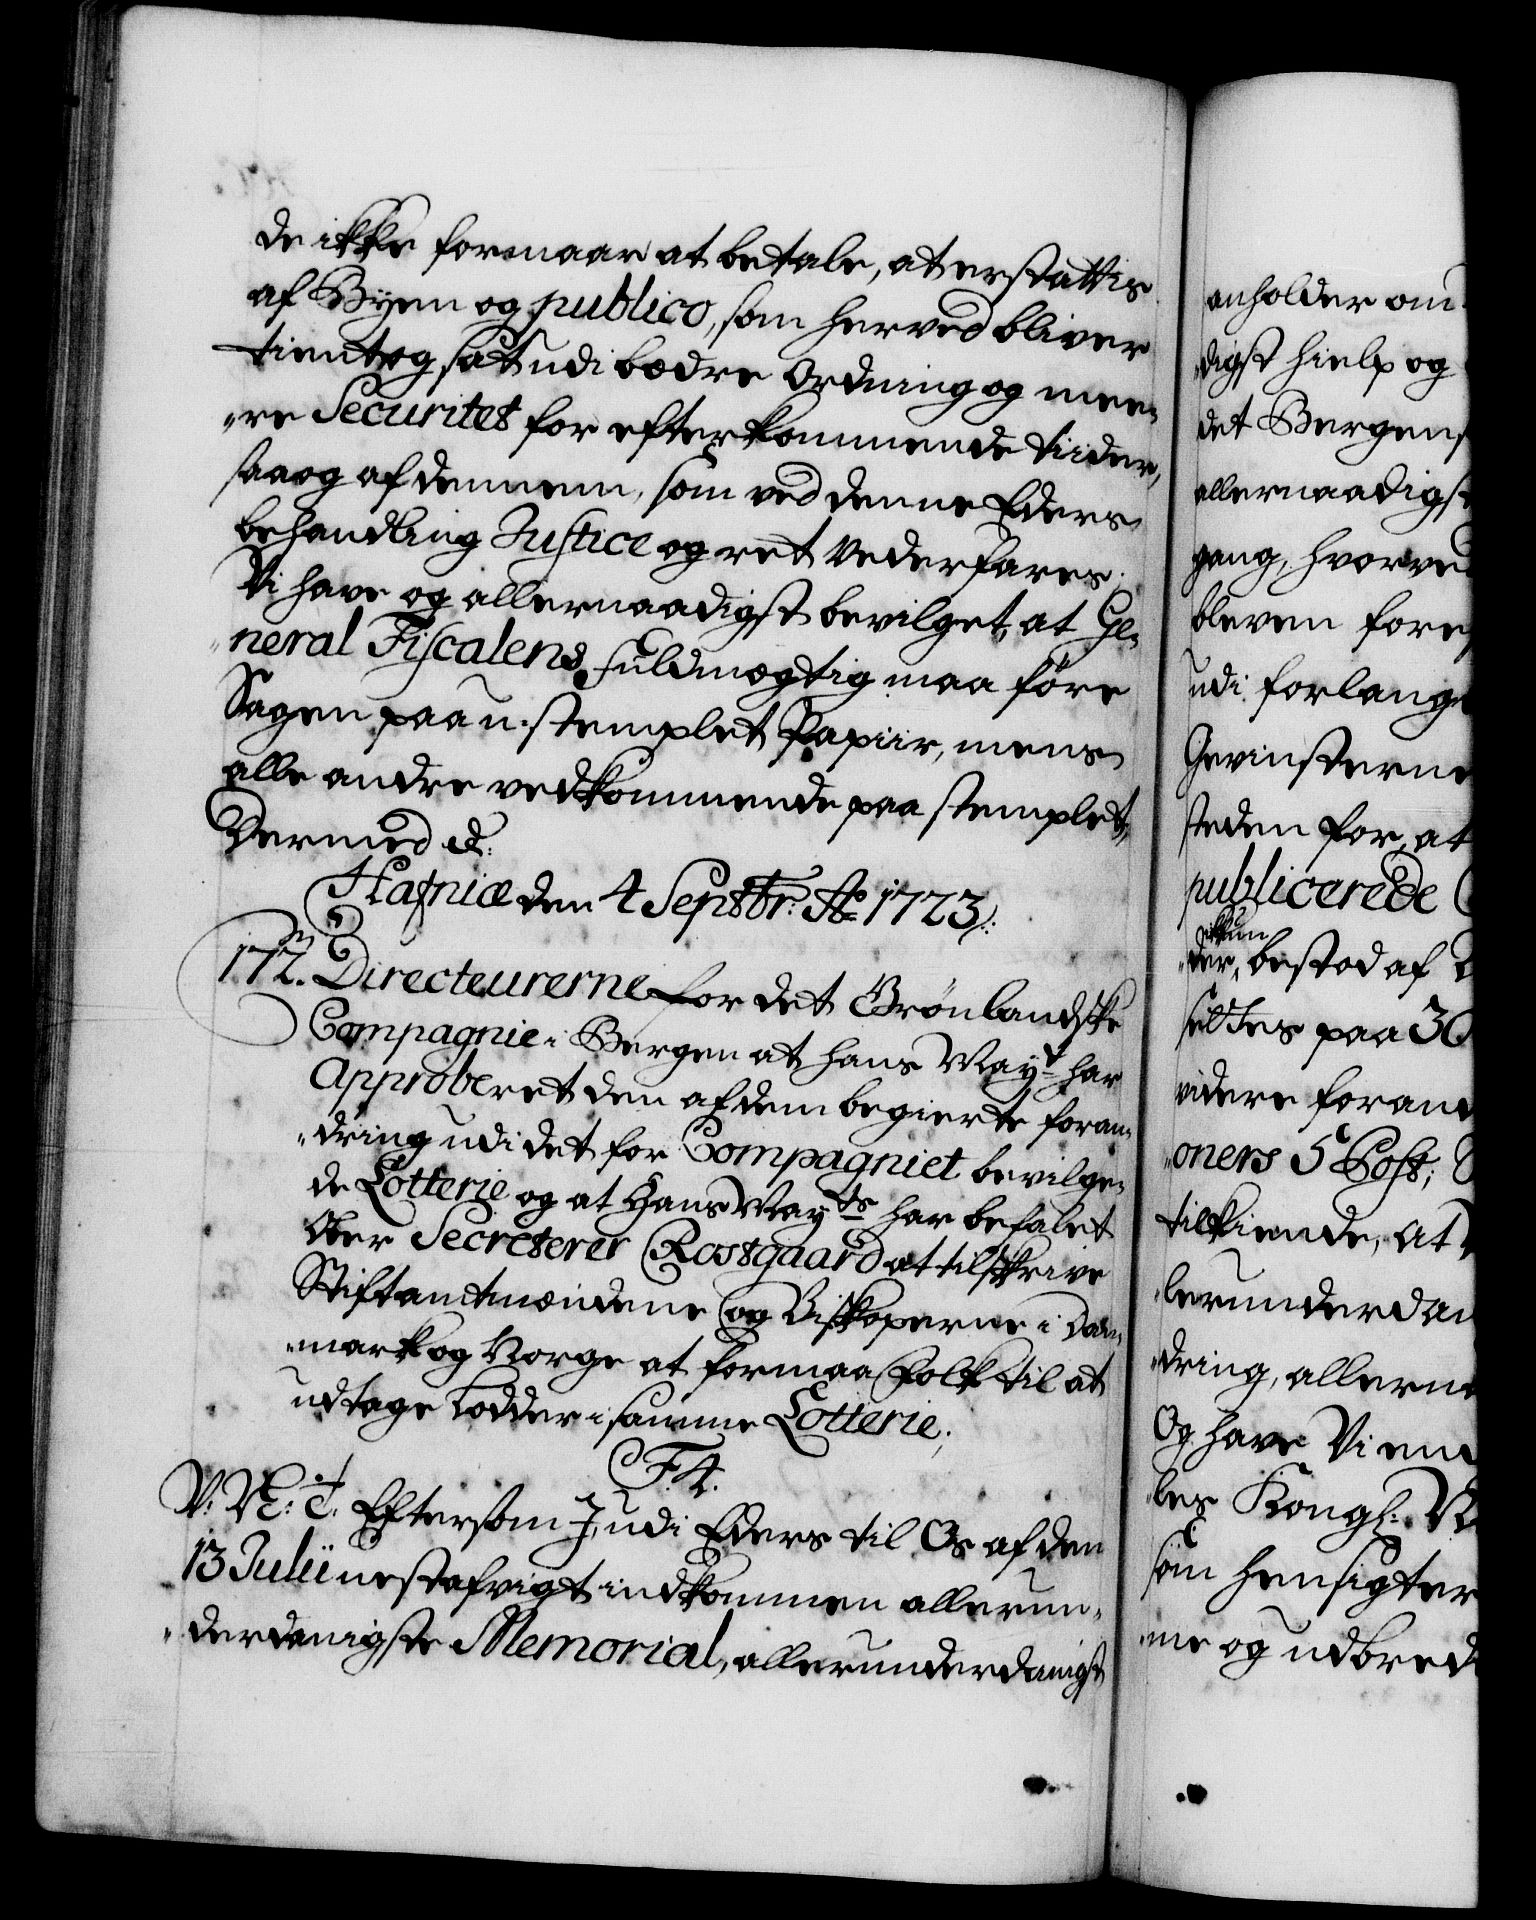 de ikke formaar at betale, at erstattis
af Byen og publico, som herved bliver
tient og sat udi bædre Ordning og mee„
„re Securitet for efterkommende tiider,
saa og af dennem, som ved denne Eders
behandling Justice og ret vederfares.
Vi have og allernaadigst bevilget, at Ge„
„neral Fiscalens fuldmægtig maa føre
Sagen paa u-stemplet Papiir, mens
alle andre vedkommende paa stemplet,
Dermed &:
Hafniæ den 4 Septbr: Ao 1723.
172. Directeurerne for det Grönlandske
Compagnie i Bergen at hans Mayt har
Approberet den af dem begierte foran„
„dring udi det for Compagniet bevilge„
de Lotterie og at Hans Mayts har befalet
Ober Secreterer Rostgaard at tilskrive
Stiftamtmændene og Biskoperne i Dan„
„mark og Norge at formaa Folk til at
udtage Lodder i samme Lotterie;
F.4.
V: N: T: Eftersom I, udi Eders til Os af den
13 Julii nestafvigt indkommen allerun„
„derdanigste Memorial, allerunderdanigst
anholder om
„digst hielp og
det Bergens
allernaadigst
gang, hvorved
bleven fore
udi forlang
Gevinsterne
steden for, at
publicerede
ikkun
„der, bestod af
seddes paa 30
videre foran
„oners 5 Post;
tilkiende, at
„lerunderdan
„dring, allern
Og have Vi
„les Kongl: 
som hensigter
„me og udbred